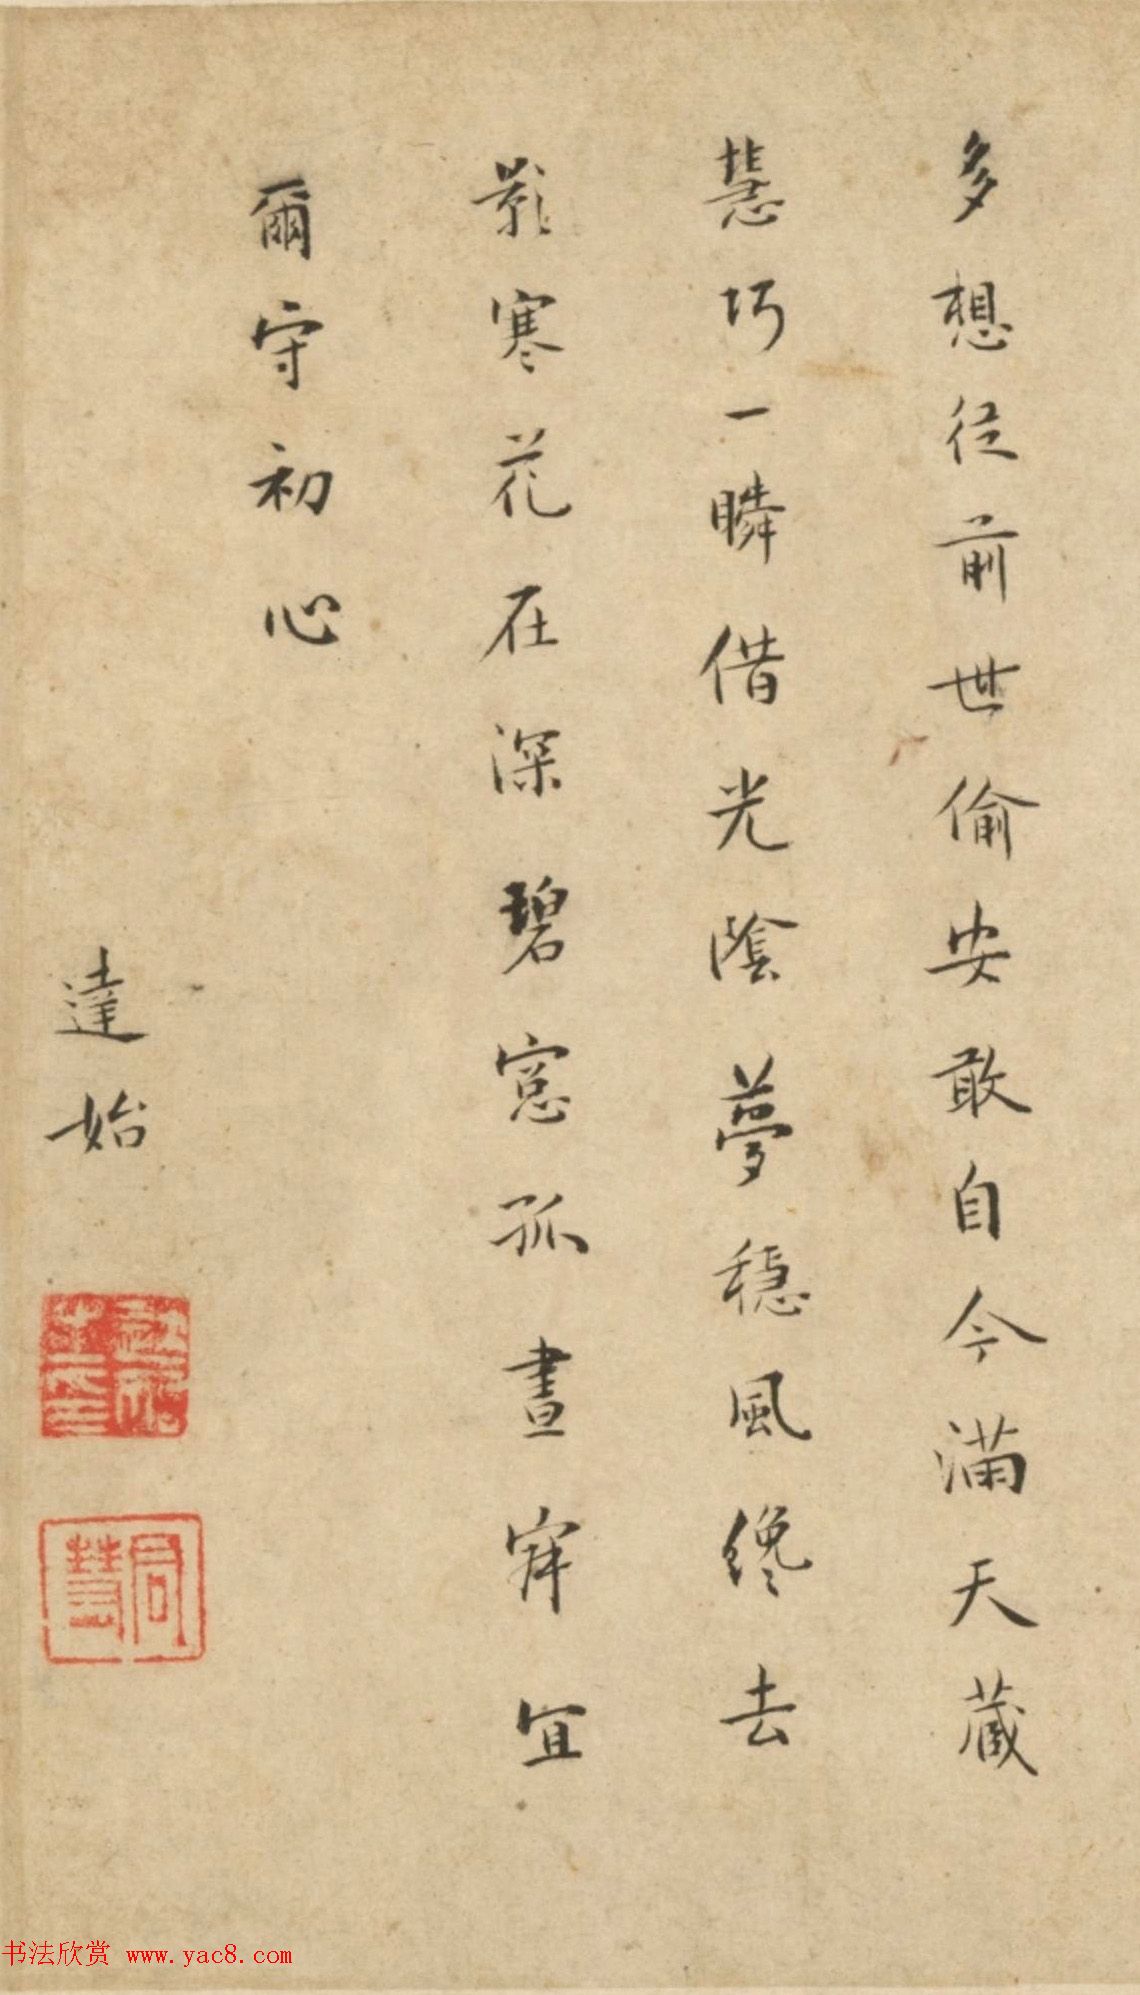 多想從前世偷安敢自今滿天藏
慧巧一瞬借光陰夢穩風纔去
影寒花在深碧窓孤晝寐宜
爾守初心
達始
同慧
书法欣赏 www.yac8.com